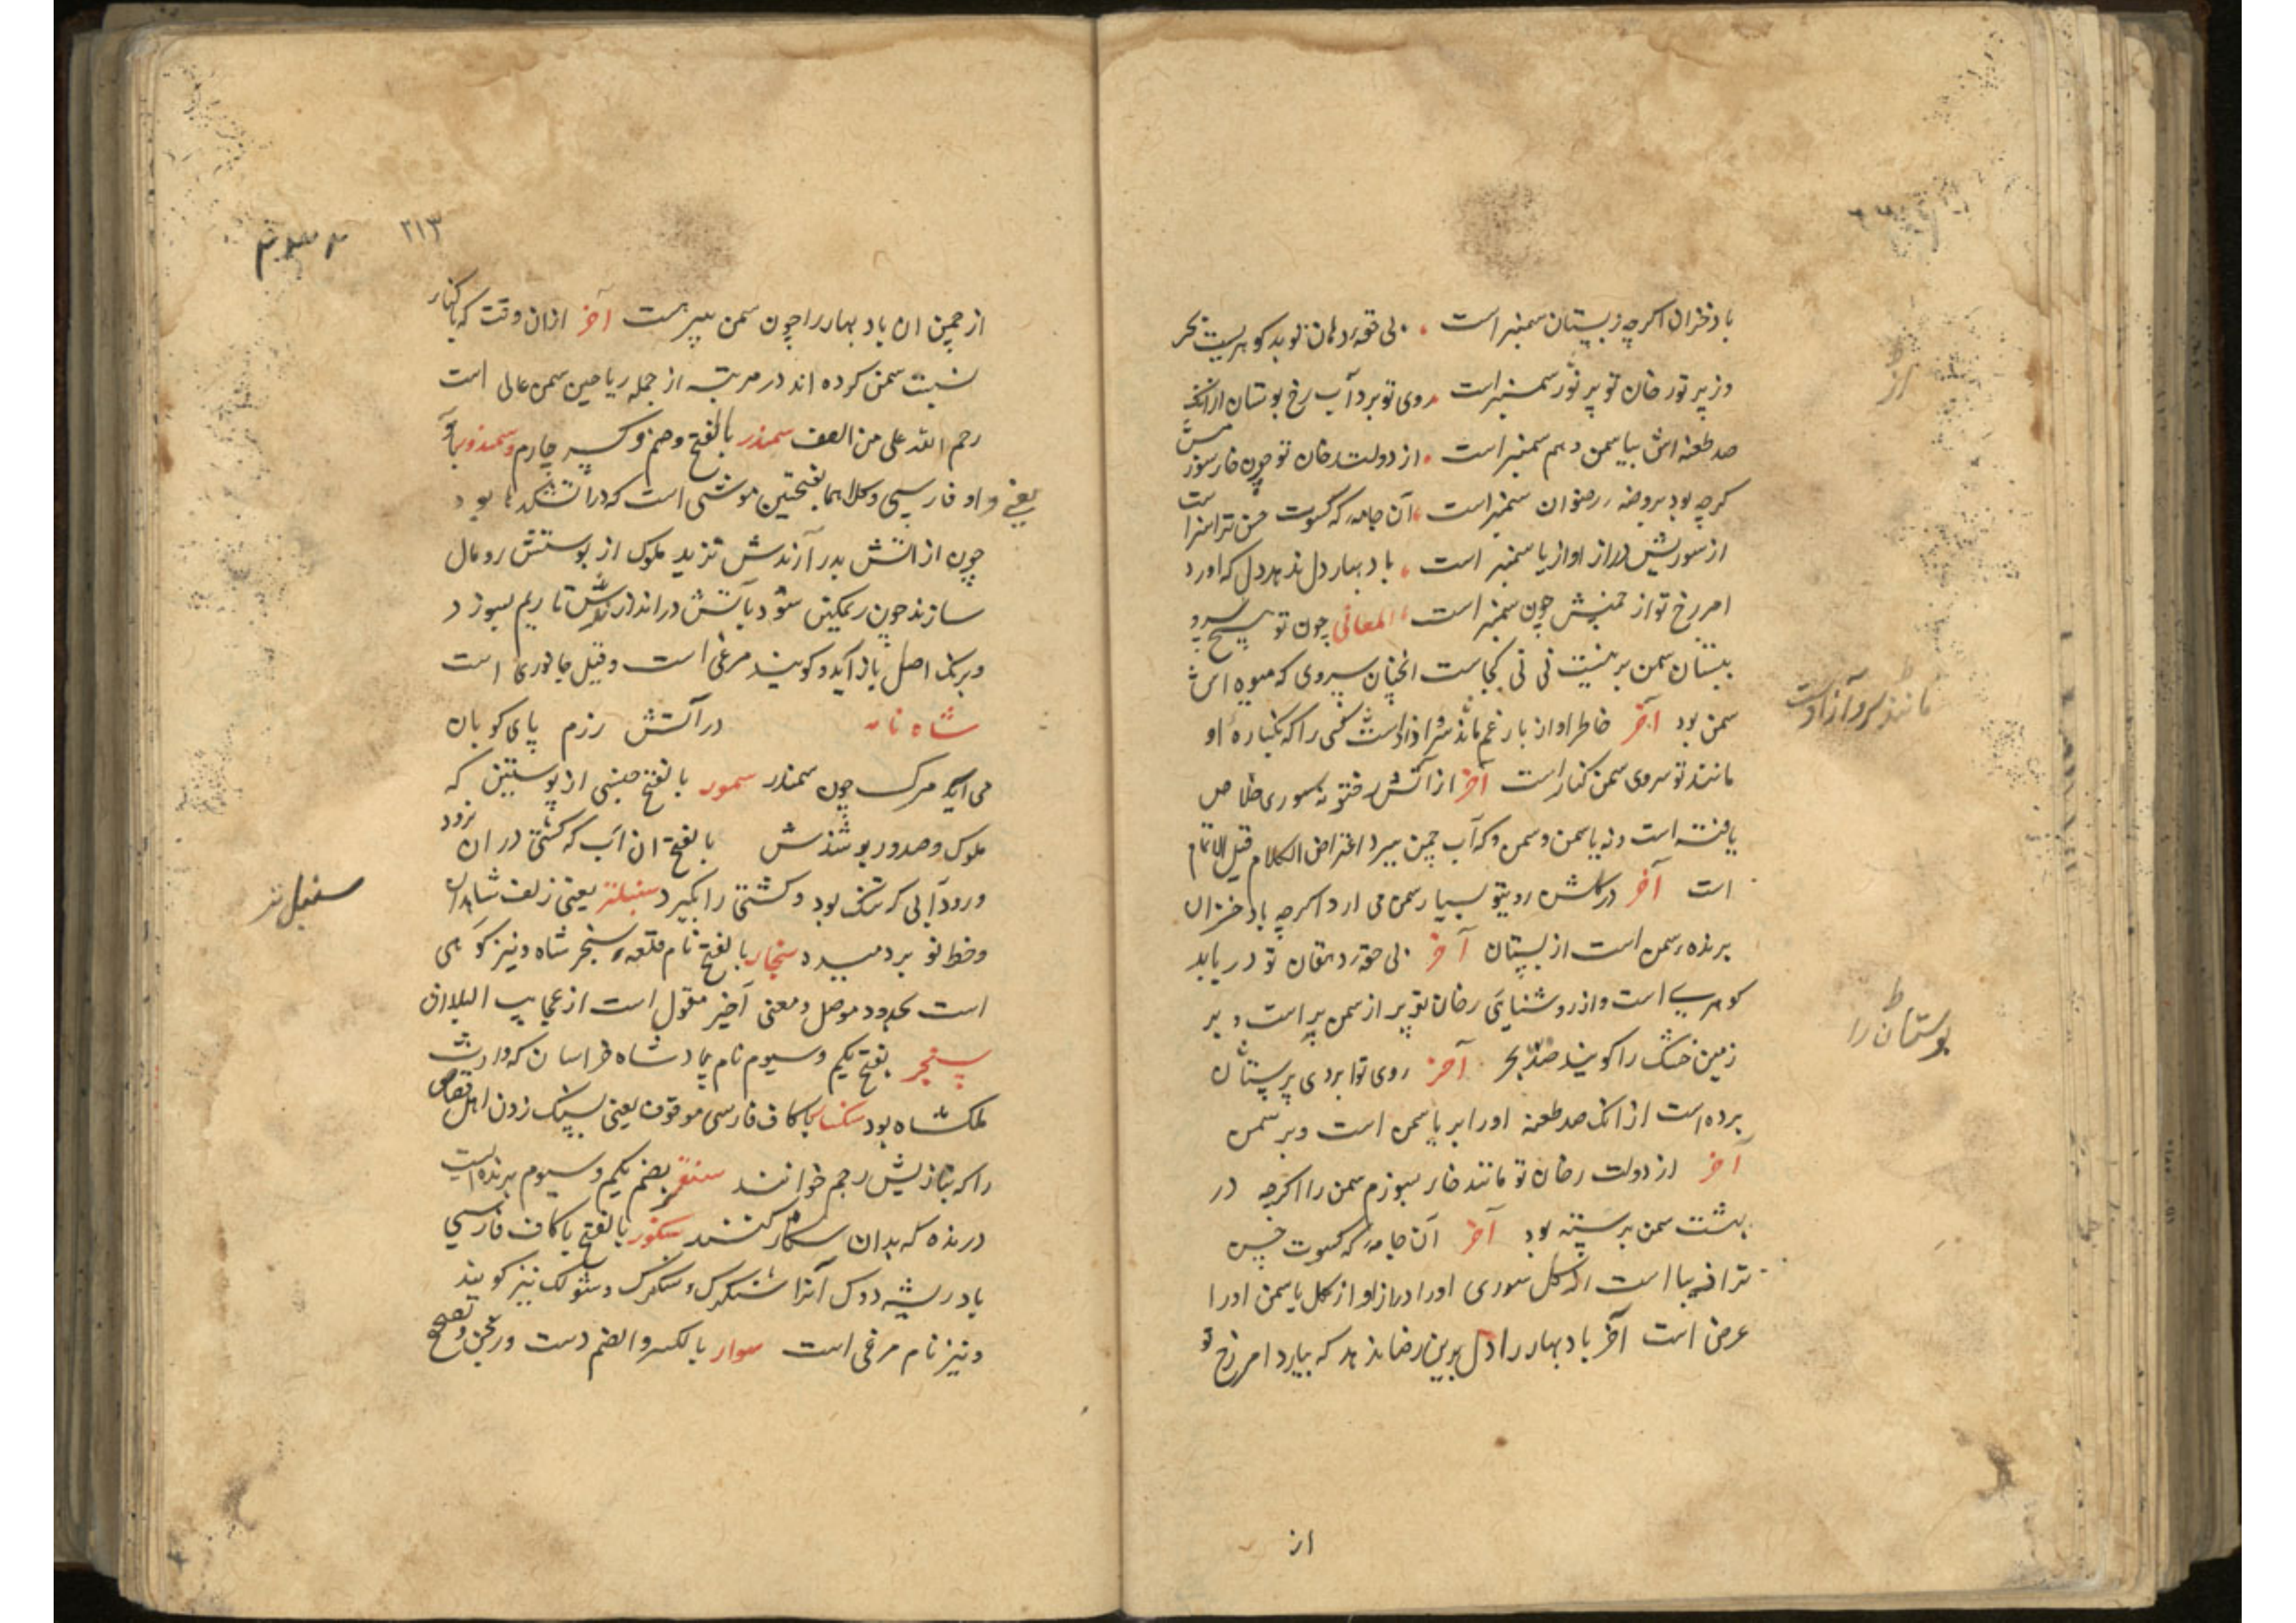 باد خزان اکرچه ز بستان سمنبر است
در پرتو رخان تو پر نور سمنبر است روی تو برد آب رخ بوستان ازانک
صد طعنه اش بیاسمن و هم سمنبر است از دولت رخان تو چون خار سوز
کرچه بود بروضه رضوان سمنبر است آن جامه که کسوت حسن ترا سزا است
از سوریش دراز او از یاسمنبر است باد بهار دل ندهد دل که اورد
امر رخ تو از چمنش چون سمنبر است المعانی چون تو هیچ سرو
ببستان سمن بر نیست نی نی کجاست انچنان سروی که میوه اش
سمن بود آخر خاطر او از بار غم مانند سرو ازاد است کسی را که بکناره او
مانند تو سروی سمن کنار است آخر از آتش
یافته است و نه یاسمن و سمن و که آب چمن ببرد اعتراض الکلام قبل الاتمام
است آخر در کلشن رویتو بسیار سمن می ارد اکرچه باد خزان
برنده سمن است از بستان آخر بی حقه دهان تو دریابد
کوهری است و از روشنایی رخان تو پر از سمن پر است و بر
زمین خشک را کویند ضد بحر آخر روی تو ابروی بستان
برده است ازانک صد طعنه اورا بر یاسمن است و بر سمن
آخر از دولت رخان تو مانند خار بسوزم سمن را اکرچه در
بهشت سمن برسته بود آخر آن جامه که کسوت حسن
ترا زیبا است از کل سوری اورا دراز او از کل یاسمن اورا
عرض است آخر باد بهار را دل برین رضا ندهد که بیارد امر رخ تو
از
ط
از
مانند سرو آزاد است
ط
بوستان را
۲۱۳
از چمن ان باد بهار را چون سمن سپر است آخر ازان وقت که با کنار
نسبت سمن کرده اند در مرتبه از جمله ریاحین سمن عالی است
رحم الله علی من انصف سمندر بالفتح وضم و کسر چارم و سمندور
یعنی واو فارسی وکلاهما بفتحتین موشی است که در آتشکدها بود
چون از آتش بدر آرندش نزید ملوک از پوستش رومال
سازند چون ریمکین شود بآتش دراندازندش تا ریم بسوزد
وبرنک اصل باز آید و کویند مرغی است وقیل جانوری است
شاه نامه در آتش رزم پای کوبان
می آید مرک چون سمندر سمور بالفتح جنسی از پوستین که
ملوک و صدور پوشندش بالفتح ان آب که کشتی در ان نرود
ورود آبی که تنک بود و کشتی را بکیرد سنبلتر یعنی زلف شاهدان
وخط نو بردمیده سنجار بالفتح نام قلعه سنجر شاه ونیز کوهی
است بحدود موصل ومعنی آخر منقول است از عجایب البلدان
سنجر بفتح یکم وسیوم نام پادشاه خراسان که وارث
ملکشاه بود سنکسار باکاف فارسی موقوف یعنی بسنک زدن اهل قصاص
را که بتازیش رجم خوانند سنقر بضم یکم وسیوم پرنده ایست
درنده که بدان شکار کنند سنکور بالفتح باکاف فارسی
بادریشه دوک آنرا شنکرک و سنکرک و شولک نیز کویند
ونیز نام مرغی است سوار بالکسر والضم دست ورنجن وتصحیح
سنبل تر